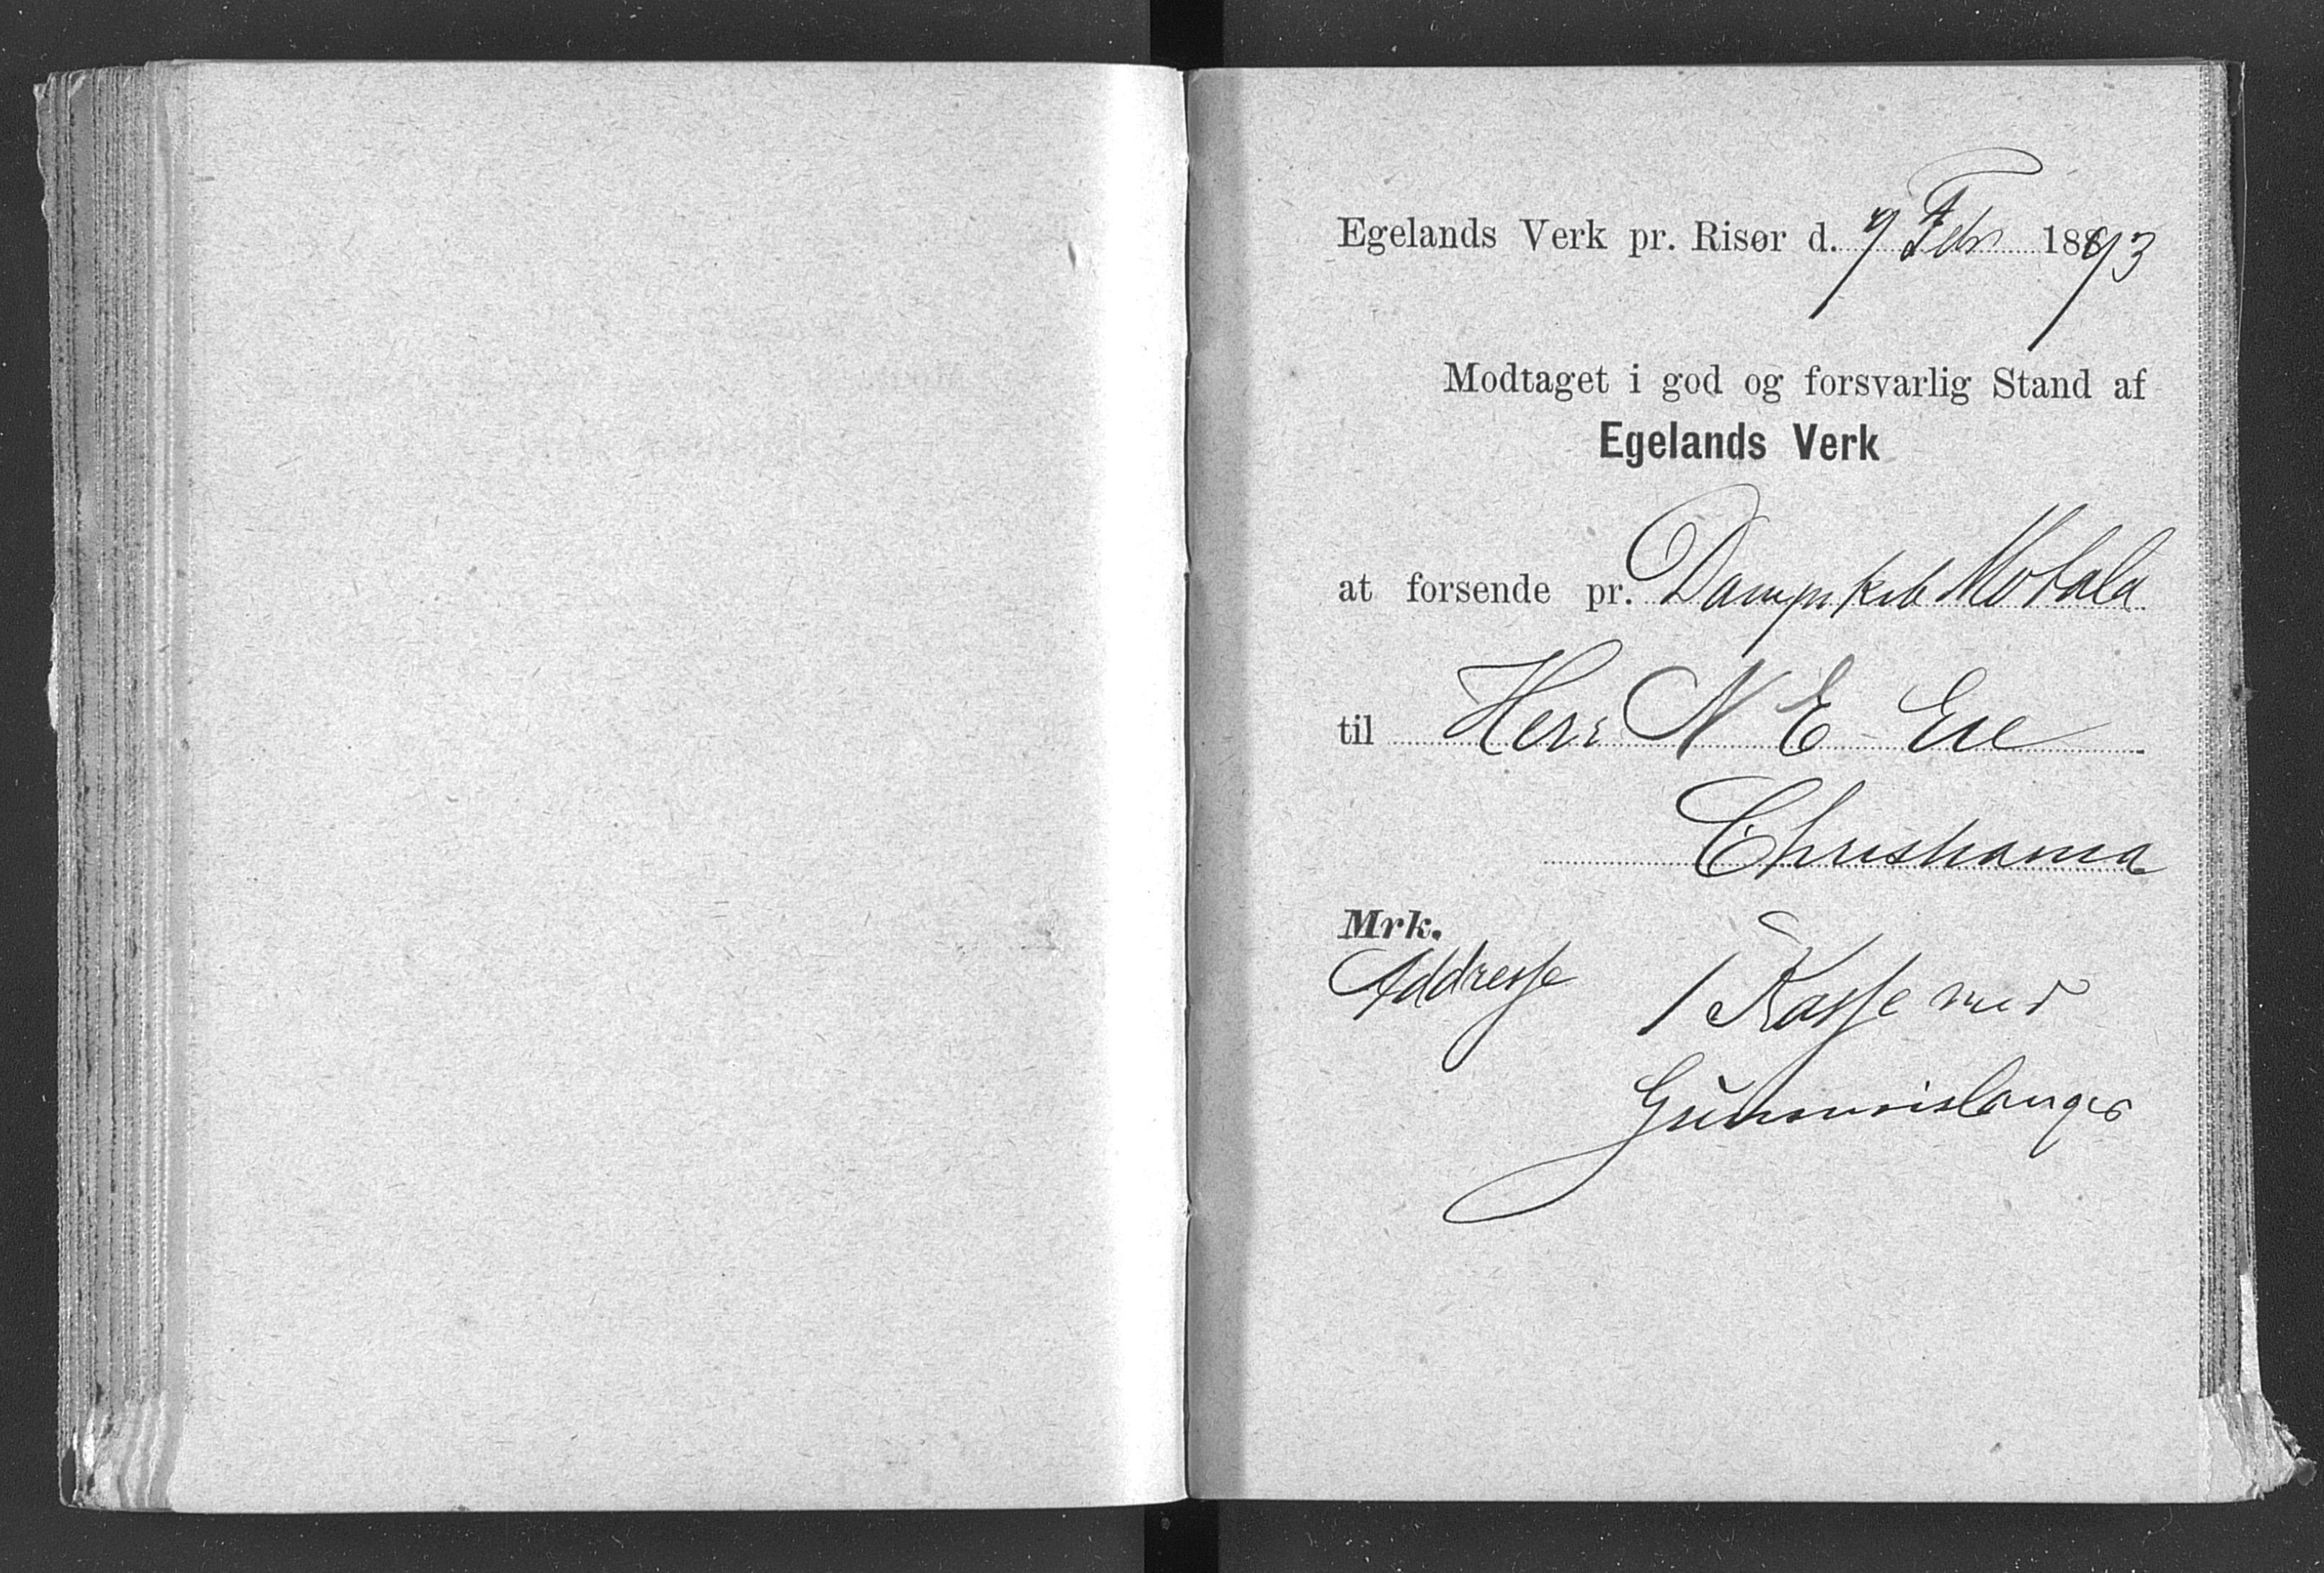 Egelands Verk pr. Risør d. 7 Febr 1893
Modtaget i god og forsvarlig Stand af
Egelands Verk
at forsende pr. Dampskib Motala
til Herr N E
Christiania
Mrk.
Addresse 1 Kasse med
Gummislanger